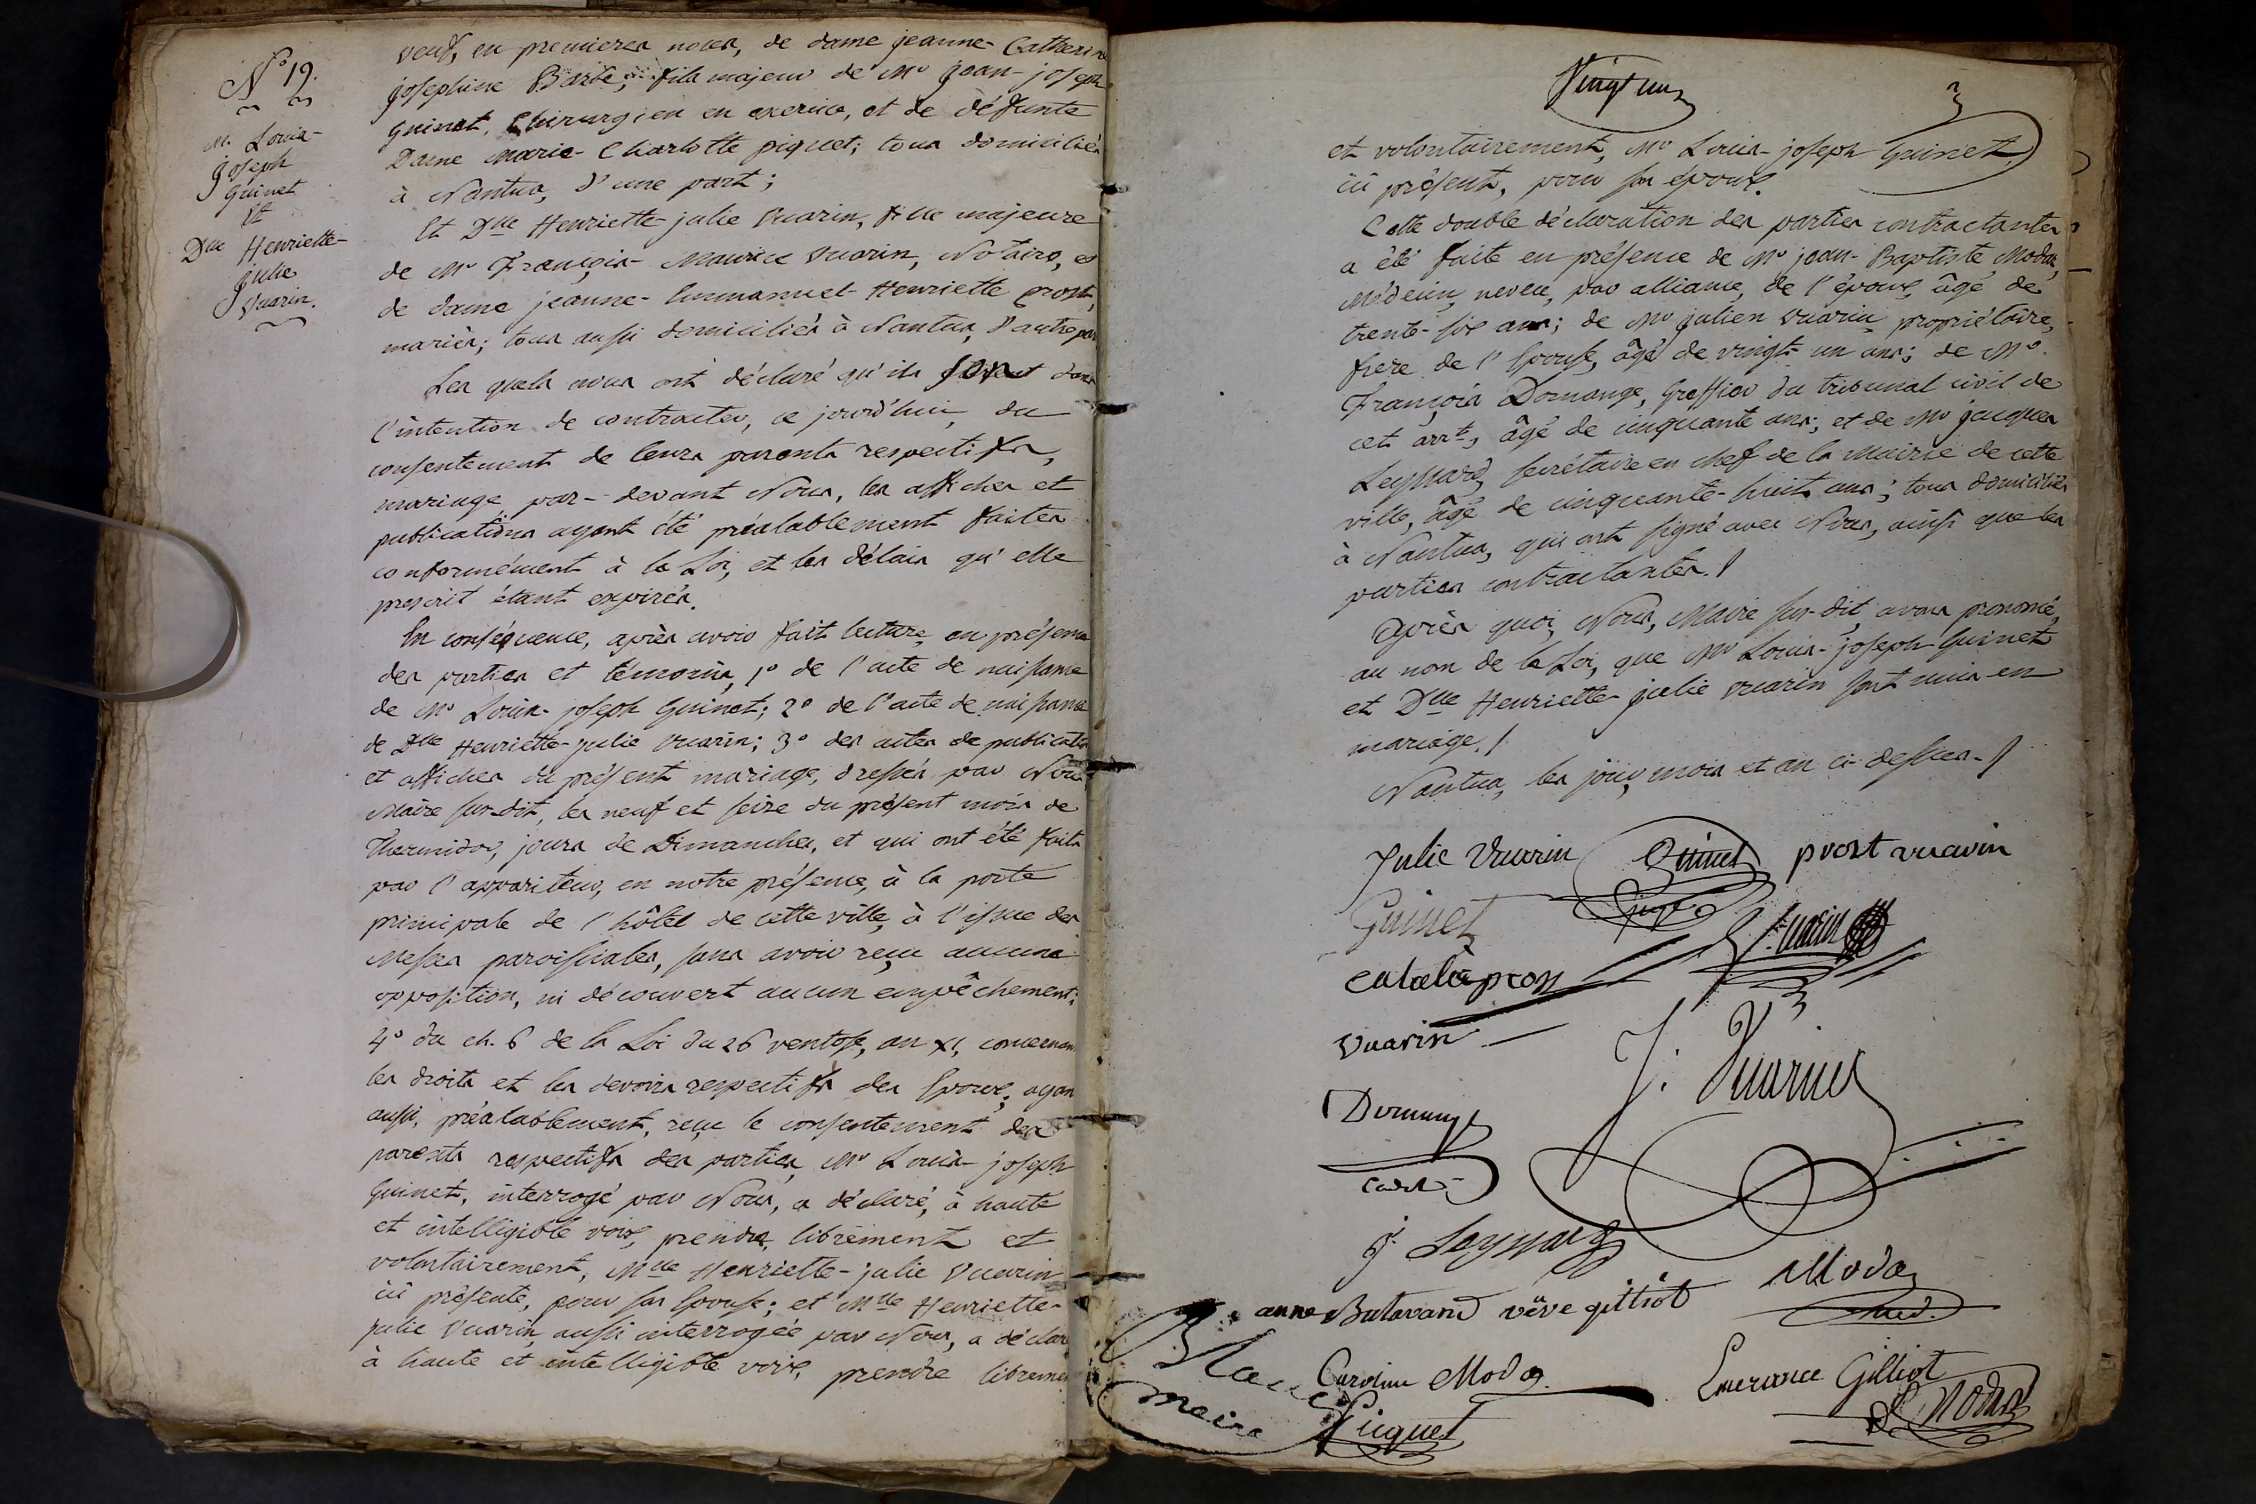 N.º 19.
M. Louis-
Joseph
Guinet
Et
Dlle Henriette-
Julie
Vuarin.
veuf, en premieres noces, de dame jeanne-Catherine
josephine Barbe; fils majeur de Mr jean-joseph
Guinet, Chirurgien en exercice, et de défunte
Dame marie-Charlotte piquet; tous domiciliés
à Nantua, d'une part;
Et Dlle Henriette-julie Vuarin, fille majeure
de Mr François-Maurice Vuarin, Notaire, et
de dame jeanne-Emmanuel-Henriette prost,
mariés; tous aussi domiciliés à Nantua, d'autre part
Les quels nous ont déclaré qu'ils sont dans
l'intention de contracter, ce jourd'hui, du
consentement de leurs parents respectifs,
mariage par-devant Nous, les affiches et
publications ayant été préalablement faites
conformément à la Loi, et les délais qu'elle
prescrit étant expirés.
En conséquence, après avoir fait lecture, en présence
des parties et témoins, 1º de l'acte de naissance
de Mr Louis-joseph Guinet; 2º de l'acte de naissance
de Dlle Henriette-julie Vuarin; 3º des actes de publication
et affiches du présent mariage, dressés par Nous
Maire sus-dit, les neuf et seize du présent mois de
Thermidor, jours de Dimanches, et qui ont été faits
par l'appariteur, en notre présence, à la porte
principale de l'hôtel de cette ville, à l'issue des
Messes paroissiales, sans avoir reçu aucune
opposition, ni découvert aucun empêchement;
4º du ch. 6 de la Loi du 26 ventose, an XI, concernant
les droits et les devoirs respectifs des Epoux; ayant
aussi, préalablement, reçu le consentement des
parents respectifs des parties, Mr Louis-joseph
Guinet, interrogé par Nous, a déclaré, à haute
et intelligible voix, prendre, librement et
volontairement, Mlle Henriette-julie Vuarin
ici présente, pour son Epouse; et Mlle Henriette-
julie Vuarin, aussi interrogée par Nous, a déclaré
à haute et intelligible voix, prendre librement
Vingt un
et volontairement, Mr Louis-joseph Guinet,
ici présent, pour son époux.
Cette double déclaration des parties contractantes
a été faite en présence de Mr jean-Baptiste Modas,
Médecin, neveu, par alliance, de l'époux, âgé de
trente-six ans; de Mr julien Vuarin, propriétaire,
frere de l'Epouse, âgé de vingt-un ans; de Mr
François Domange, Greffier du tribunal civil de
cet arrt, âgé de cinquante ans; et de Mr jacques
Leyssard, secrétaire en chef de la Mairie de cette
ville, âgé de cinquante-huit ans; tous domiciliés
à Nantua, qui ont signé avec Nous, ainsi que les
parties contractantes.
Après quoi, Nous, Maire sus-dit, avons prononcé,
au nom de la Loi, que Mr Louis-joseph Guinet
et Dlle Henriette-julie Vuarin sont unis en
mariage.
Nantua, les jour, mois et an ci-dessus.
Julie Vuarin Guinet prost vuarin
Guinet
Vuarin
J. Vuarin
Domange
J. Leyssard
Modas
anne Butavand vëve gilliot
Caroline Modas
Emerance Gilliot
maire
Picquet